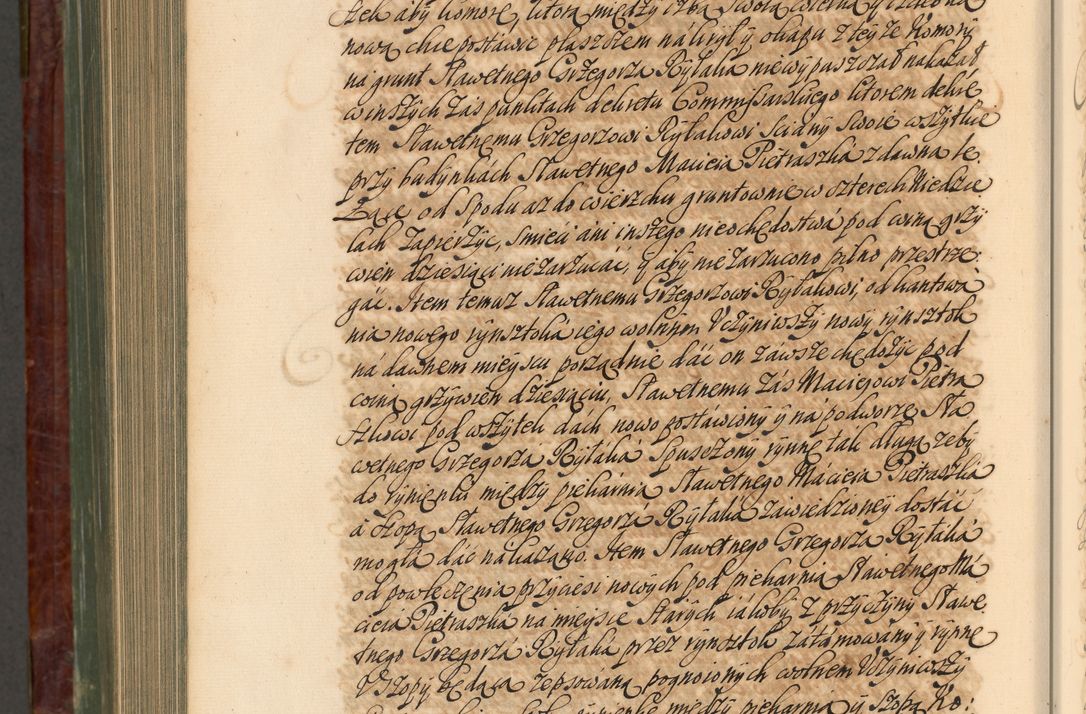 szek aby komorę, ktorą między izbą swoią
nową chce postawic płaszczem nakrył y okapu z teyże komory
na grunt Sławetnego Grzegorza Rytalia nie wypaszczał nakazał
w inszych zaś punktach dekretu Commissarskiego ktorem dekre
tem Sławetnemu Grzegorzowi Rytaliowi sciany swoie wszytkie
przy budynkach Sławetnego Macieia Pietraszka zdawna le
żące od spodu aż do wierzchu gruntownie w czterech Niedzie
lach zapierzyc, smieci ani inszego nieochędostwa pod winą grzy
wien dziesiąci nie zarzucac, y aby nie zarzucono pilno przestrze:
gać. Item temuz Sławetnemu Grzegorzowi Rytaliowi, od
nia nowego rynsztoka iego wolnym Uczyniwszy nowy rynsztok
na dawnem mieyscu porządnie dać on zawsze chędożyc pod
winą grzywien dziesiąciu, Sławetnemu zaś Maciejowi Pietra
szkowi pod wszytek dach nowo postawiony y na podworze Sła
wetnego Grzegorza Rytalia spuszczony rynnę tak długą zeby
do rynienki między piekarnią Sławetnego Macieia Pietraszka
a szopą Sławetnego Grzegorza Rytalia zawiedzioney dostać
mogła dac nakazano. Item Sławetnego Grzegorza Rytalia
od powleczenia przyciesi nowych pod piekarnią Sławetnego Ma
cieia Pietraszka na mieysce starych iakoby z przyczyny Sławe
tnego Grzegorza Rytalia przez rynsztok zatamowany y rynnę
U szopy będącą zepsowaną pognoionych wolnem Uczyniwszy
między piekarnią y szopą